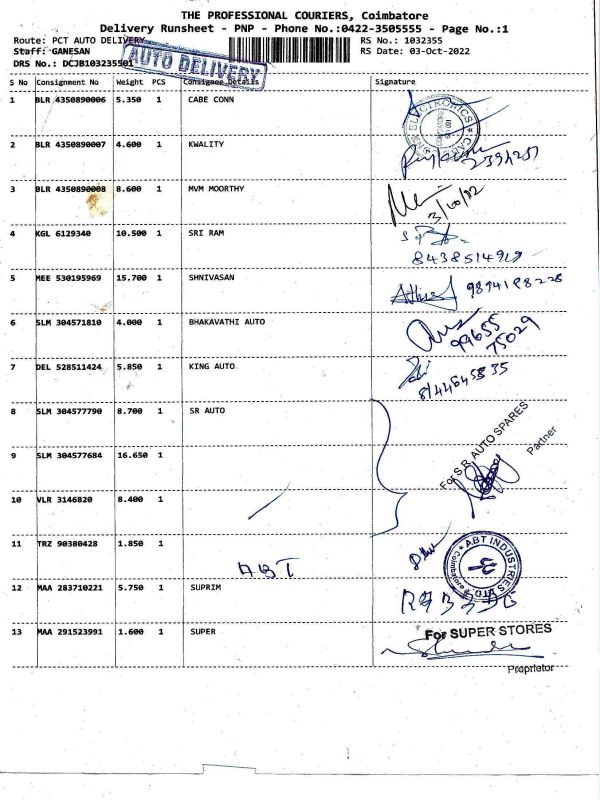 THE PROFESSIONAL COURIERS, Coimbatore
Delivery Runsheet - PNP - Phone No.:0422-3505555 - Page No.:1
Route: PCT AUTO DELIVERY RS No.: 1032355
Staff: GANESAN RS Date: 03-Oct-2022
DRS No.: DCJB103235501
AUTO DELIVERY
S No Consignment No Weight PCS Consignee Details Signature
1 BLR 4350890006 5.350 1 CABE CONN
2 BLR 4350890007 4.600 1 KWALITY
3 BLR 4350890008 8.600 1 MVM MOORTHY
3/10/22
4 KGL 6129340 10.500 1 SRI RAM
8438514919
5 MEE 530195969 15.700 1 SHNIVASAN
9894188228
6 SLM 304571810 4.000 1 BHAKAVATHI AUTO
99655
75029
7 DEL 528511424 5.850 1 KING AUTO
8 SLM 304577790 8.700 1 SR AUTO
For S.R. AUTO SPARES
Partner
9 SLM 304577684 16.650 1
10 VLR 3146820 8.400 1
11 TRZ 90380428 1.850 1
ABT
ABT INDUSTRIES LTD
Coimbatore
12 MAA 283710221 5.750 1 SUPRIM
13 MAA 291523991 1.600 1 SUPER
For SUPER STORES
Proprietor